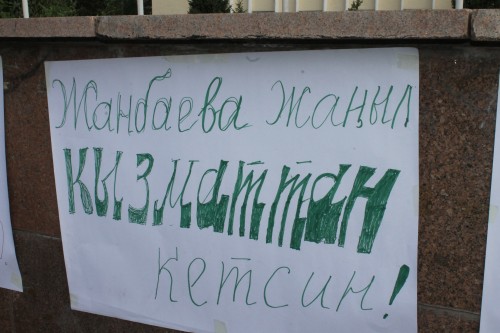 Жанбаева Жаңыл
кызматтан
кетсин!